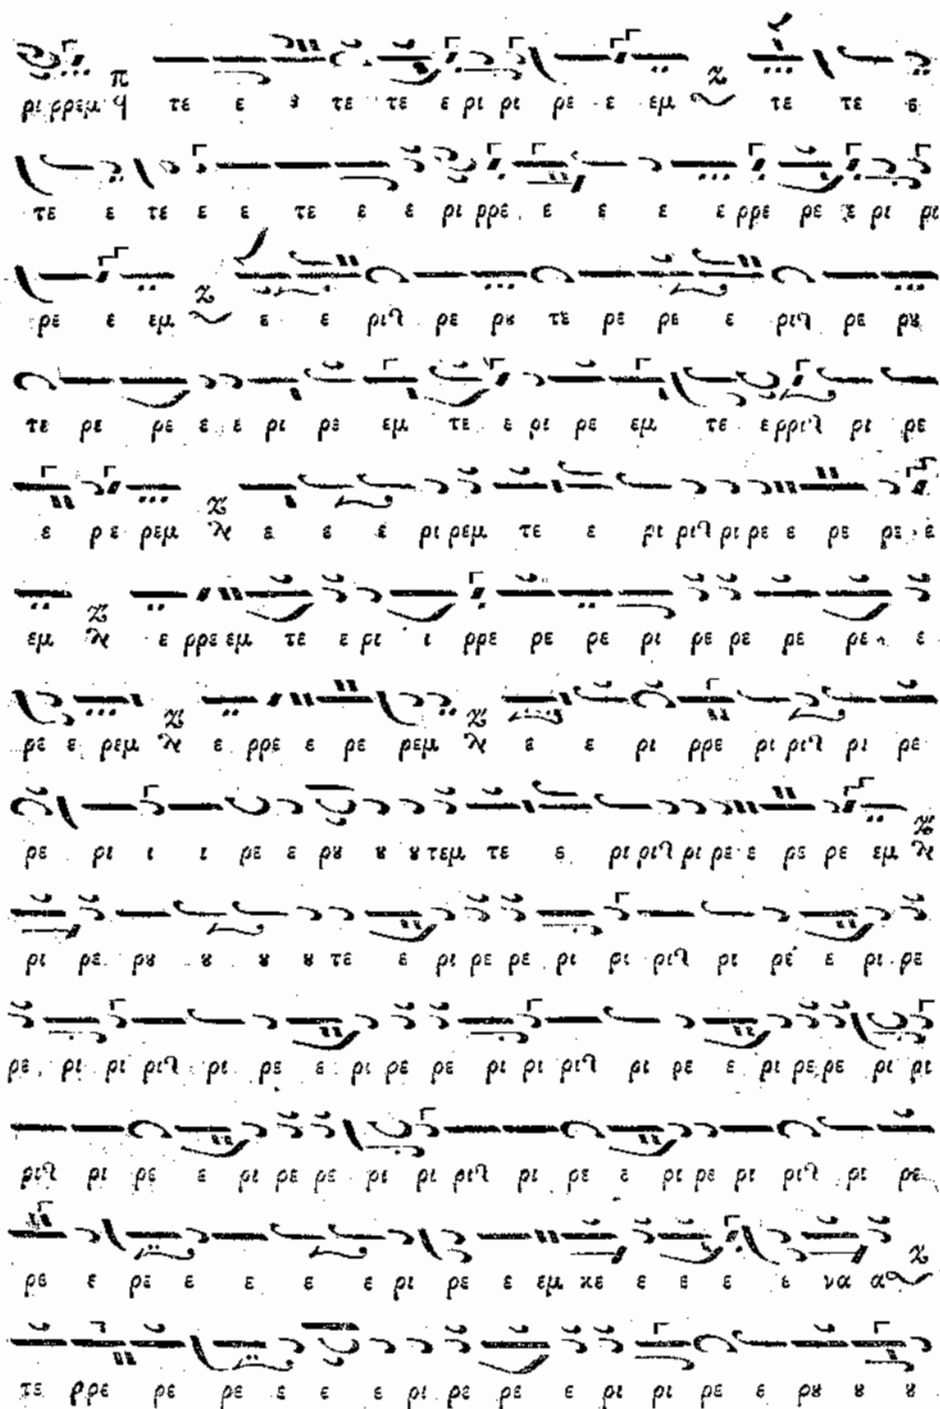 ρι ρρεμ τε ε ȣ τε τε ε ρι ρι ρε ε εμ τε τε ε
τε ε τε ε ε τε ε ε ρι ρρε ε ε ε ε ρρε ρε ε ρι ρι
ρε ε εμ ε ε ριϟ ρε ρȣ τε ρε ρε ε ριϟ ρε ρȣ
τε ρε ρε ε ε ρι ρε εμ τε ε ρι ρε εμ τε ε ρριϟ ρι ρε
ε ρε ρεμ ε ε ε ρι ρεμ τε ε ρι ριϟ ρι ρε ε ρε ρε ε
εμ ε ρρε εμ τε ε ρι ι ρρε ρε ρε ρι ρε ρε ρε ρε ε
ρε ε ρεμ ε ρρε ε ρε ρεμ ε ε ρι ρρε ρι ριϟ ρι ρε
ρε ρι ι ι ρε ε ρȣ ȣ ȣ τεμ τε ε ρι ριϟ ρι ρε ε ρε ρε εμ
ρι ρε ρȣ ȣ ȣ ȣ τε ε ρι ρε ρε ρι ρι ριϟ ρι ρε ε ρι ρε
ρε ρι ρι ριϟ ρι ρε ε ρι ρε ρε ρι ρι ριϟ ρι ρε ε ρι ρε ρε ρι ρι
ριϟ ρι ρε ε ρι ρε ρε ρι ρι ριϟ ρι ρε ε ρι ρε ρι ριϟ ρι ρε
ρε ε ρε ε ε ε ε ρι ρε ε εμ κε ε ε ε ε να α
τε ρρε ρε ρε ε ε ε ρι ρε ρε ε ρι ρι ρε ε ρȣ ȣ ȣ